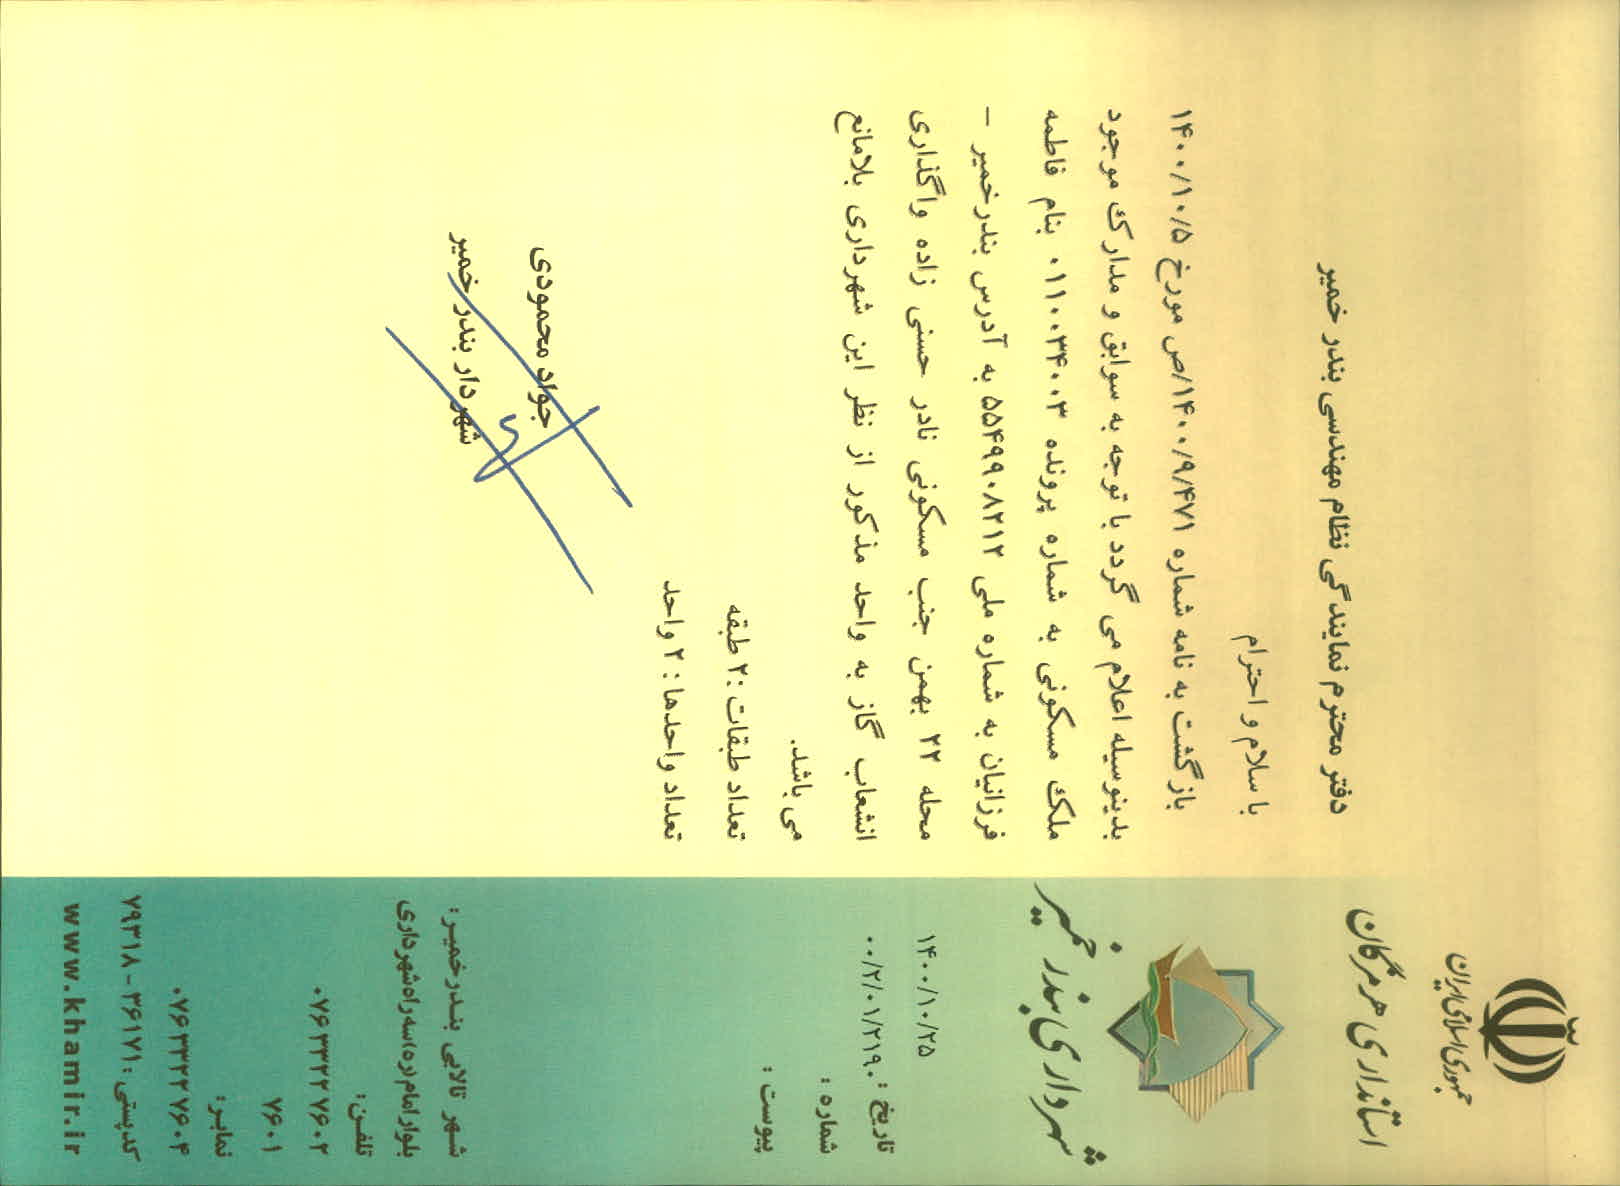 جمهوری اسلامی ایران
استانداری هرمزگان
شهرداری بندر خمیر
۱۴۰۰/۱۰/۲۵
تاریخ :
۰۰/۲/۰۱/۲۱۹۰
شماره :
پیوست :
دفتر محترم نمایندگی نظام مهندسی بندر خمیر
با سلام و احترام
بازگشت به نامه شماره ۱۴۰۰/۹/۴۷۱/ص مورخ ۱۴۰۰/۱۰/۵
بدینوسیله اعلام می گردد با توجه به سوابق و مدارک موجود
ملک مسکونی به شماره پرونده ۰۱۱۰۰۳۴۰۰۳ بنام فاطمه
فرزانیان به شماره ملی ۵۵۴۹۹۰۸۲۱۲ به آدرس بندرخمیر –
محله ۲۲ بهمن جنب مسکونی نادر حسنی زاده واگذاری
انشعاب گاز به واحد مذکور از نظر این شهرداری بلامانع
می باشد.
تعداد طبقات :۲ طبقه
تعداد واحدها : ۲ واحد
جواد محمودی
شهردار بندر خمیر
شهر تالابی بندرخمیر:
بلوار امام(ره)سه راه شهرداری
تلفن:
۰۷۶۳۳۲۲۷۶۰۲
۷۶۰۱
نمابر:
۰۷۶۳۳۲۲۷۶۰۴
کدپستی: ۳۶۱۷۱ - ۷۹۳۱۸
www.khamir.ir